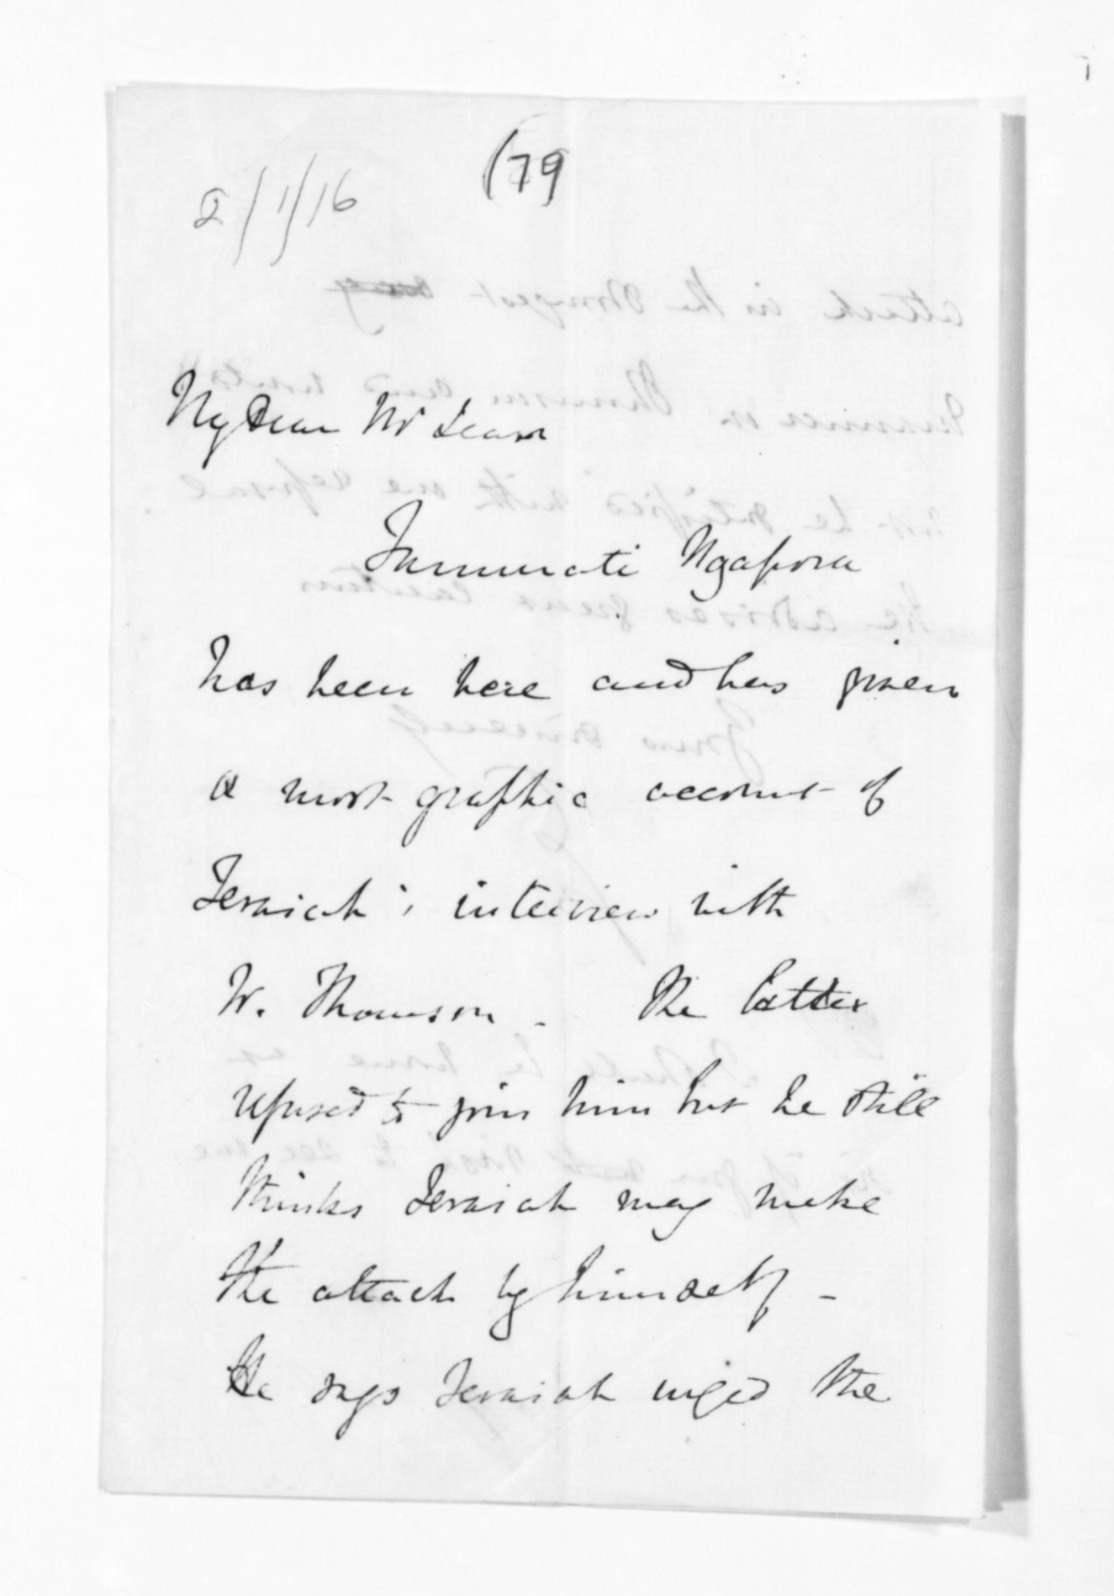 (79
2/1/16
My Dear McLean
Tammati Ngapora
has been here and has given
a most graphic account of
Teraiah's interview with
W. Thomson - The latter
refused to join him but he still
thinks Teraiah may make
the attack by himself -
He says Teraiah urged the